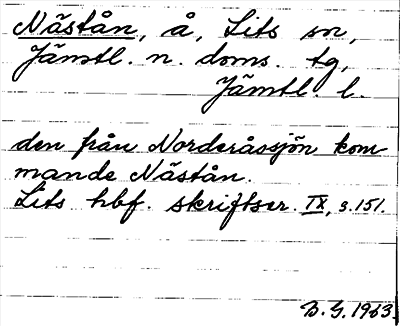 Nästån, å, Lits sn,
Jämtl. n. doms. tg,
Jämtl. l.
den från Norderåssjön kom
mande Nästån.
Lits hbf. skriftser. IX, s. 151.
B. G. 1963.